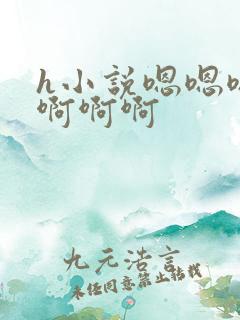 h小説嗯嗯
啊啊啊
九元浩言
未任同意禁止転載